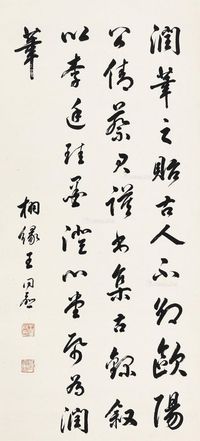 潤筆之貽古人不卻歐陽
公倩蔡君謨書集古錄叙
以李廷珪墨澄心堂紙為潤
筆
桐緣王同愈